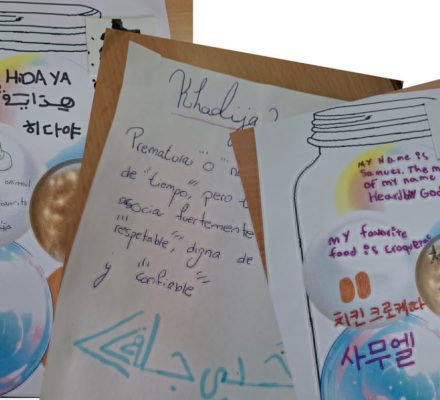 HiDAYA
هداية
히다야
animal
favorito
Khadija
Prematura o
de "tiempo, pero
asocia fuertemente
respetable, digna de
y confiable
MY NAME iS
Samuel. The m
of my name
Heard by God
my favorite
food is croquetas
치킨크로케따
사무엘